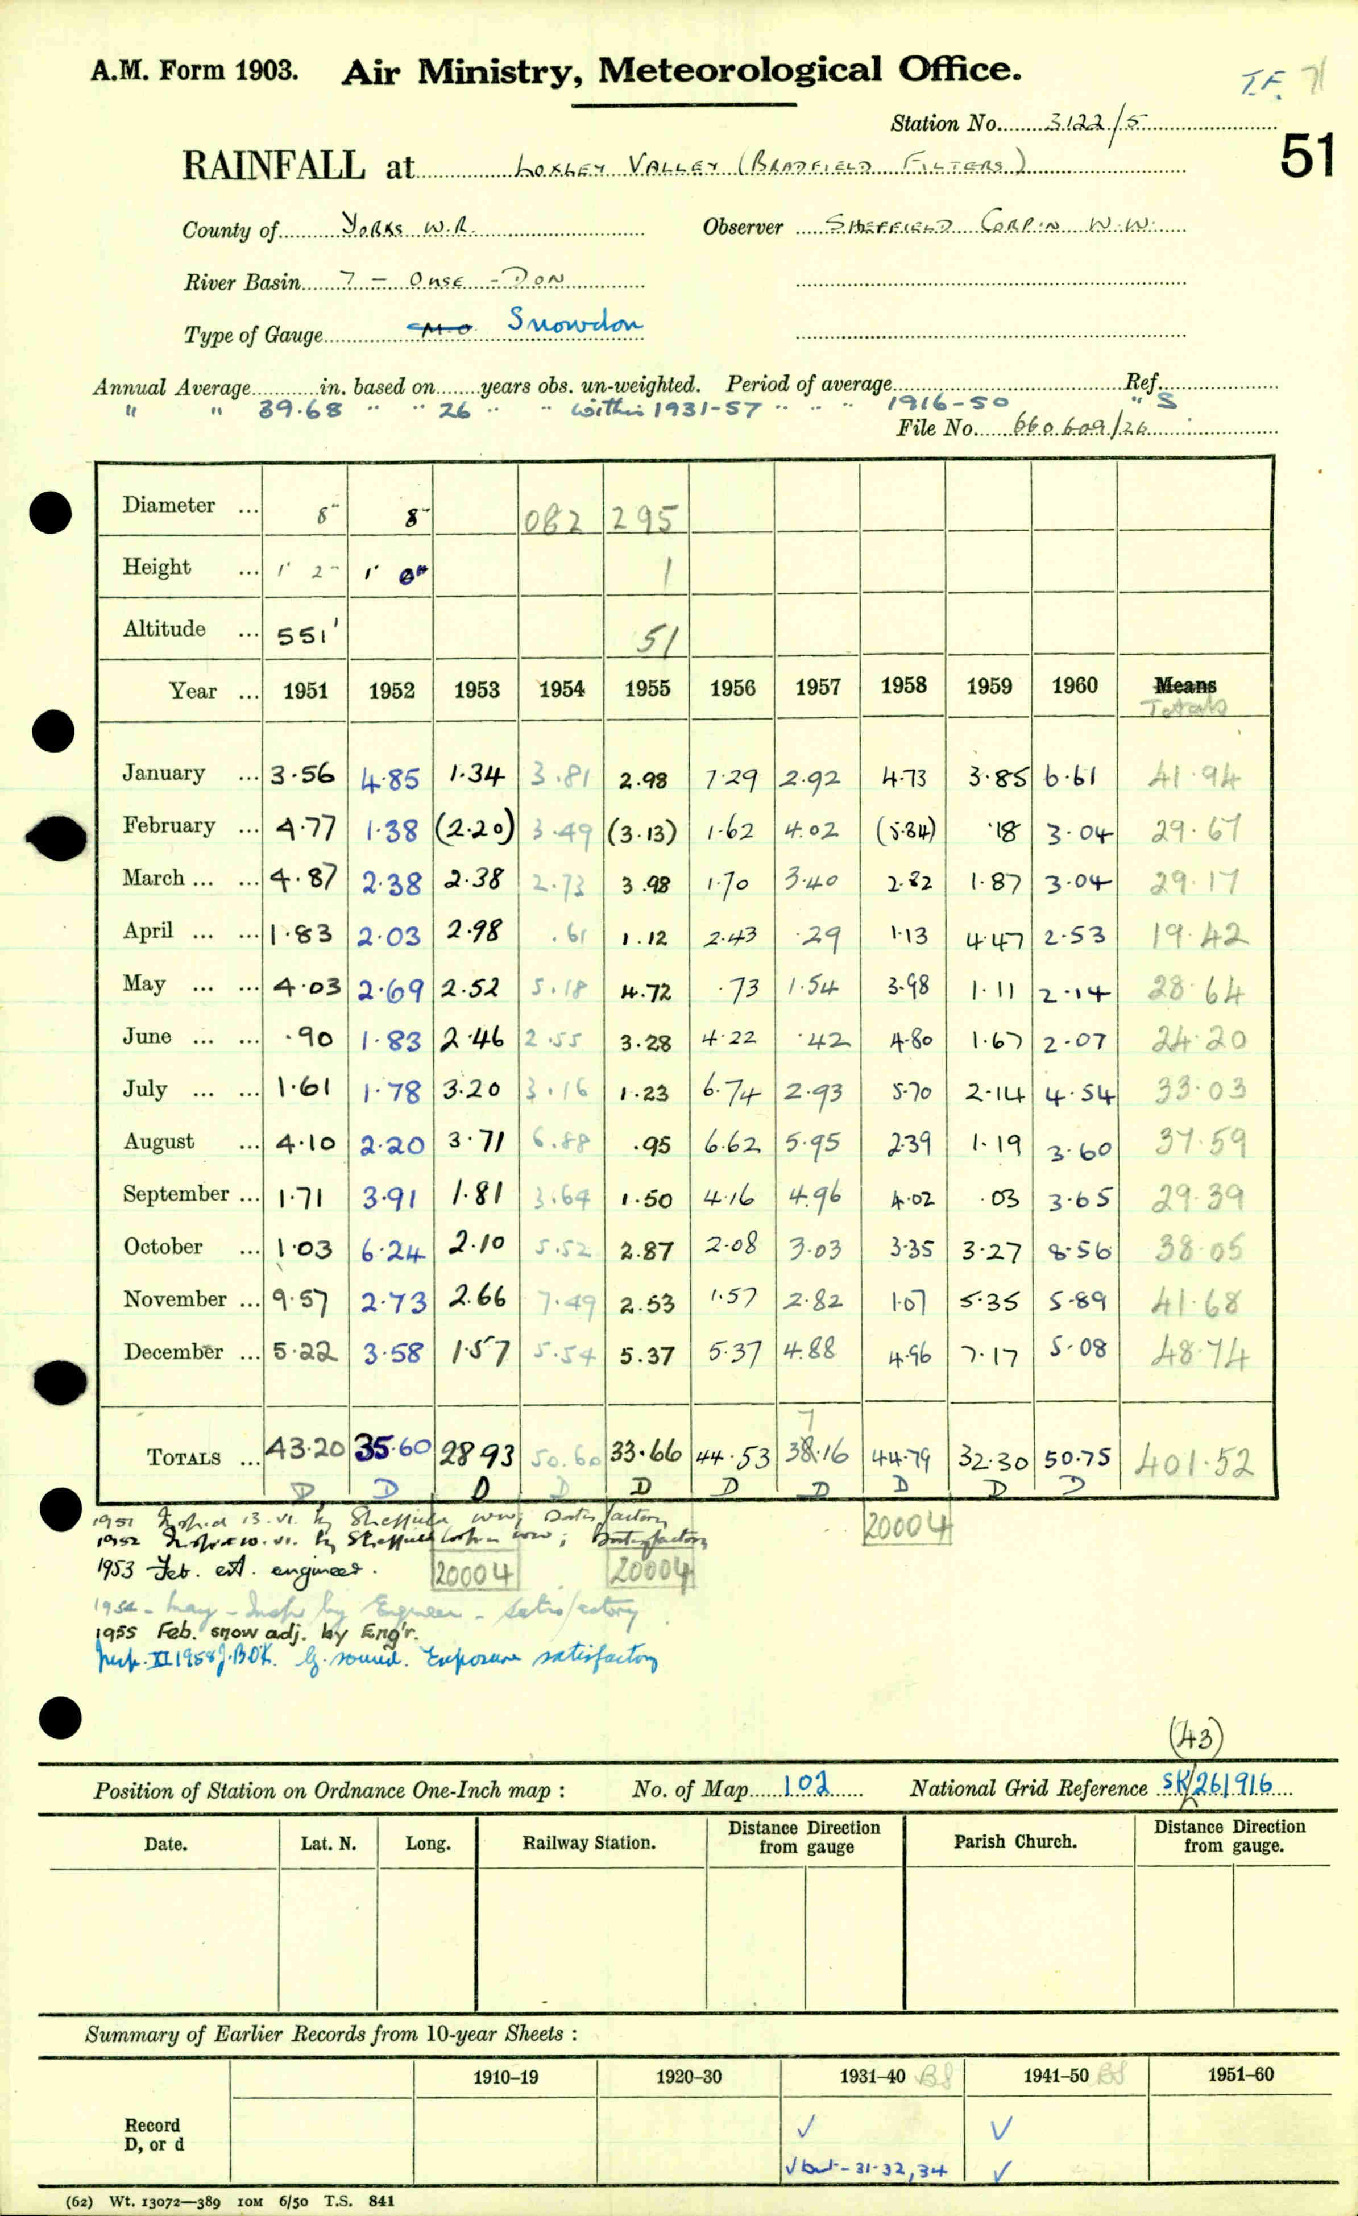 A.M. Form 1903. Air Ministry, Meteorological Office. T.F. 71
Station No. 3122/5
51
RAINFALL at LOXLEY VALLEY (BRADFIELD FILTERS)
County of YORKS W.R. Observer SHEFFIELD CORP'N W.W.
River Basin 7 - OUSE - DON
Type of Gauge M.O. Snowdon
Annual Average in. based on years obs. un-weighted. Period of average Ref.
" " 39.68 " " 26 " " within 1931-57 " " " 1916-50 " S
File No. 660609/26
Diameter ... 8" 8" 082 295
Height ... 1' 2" 1' 0" 1
Altitude ... 551' 51
Year ... 1951 1952 1953 1954 1955 1956 1957 1958 1959 1960 Means
Totals
January ... 3.56 4.85 1.34 3.81 2.98 7.29 2.92 4.73 3.85 6.61 41.94
February ... 4.77 1.38 (2.20) 3.49 (3.13) 1.62 4.02 (5.84) .18 3.04 29.67
March ... ... 4.87 2.38 2.38 2.73 3.98 1.70 3.40 2.82 1.87 3.04 29.17
April ... ... 1.83 2.03 2.98 .61 1.12 2.43 .29 1.13 4.47 2.53 19.42
May ... ... 4.03 2.69 2.52 5.18 4.72 .73 1.54 3.98 1.11 2.14 28.64
June ... ... .90 1.83 2.46 2.55 3.28 4.22 .42 4.80 1.67 2.07 24.20
July ... ... 1.61 1.78 3.20 3.16 1.23 6.74 2.93 5.70 2.14 4.54 33.03
August ... 4.10 2.20 3.71 6.88 .95 6.62 5.95 2.39 1.19 3.60 37.59
September ... 1.71 3.91 1.81 3.64 1.50 4.16 4.96 4.02 .03 3.65 29.39
October ... 1.03 6.24 2.10 5.52 2.87 2.08 3.03 3.35 3.27 8.56 38.05
November ... 9.57 2.73 2.66 7.49 2.53 1.57 2.82 1.07 5.35 5.89 41.68
December ... 5.22 3.58 1.57 5.54 5.37 5.37 4.88 4.96 7.17 5.08 48.74
7
TOTALS ... 43.20 35.60 28.93 50.60 33.66 44.53 38.16 44.79 32.30 50.75 401.52
D D D D D D D D D D
1951 Insp.d 13.vi. by Sheffield WW; Satisfactory 20004
1952 Insp.d 10.vi. by Sheffield Corp'n WW; Satisfactory
1953 Feb. est. engineer. 20004 20004
1954 - May - Insp. by Engineer - Satisfactory
1955 Feb. snow adj. by Eng'r.
Insp. XI 1958 J.BOK. G. sound. Exposure satisfactory
(43)
Position of Station on Ordnance One-Inch map : No. of Map 102 National Grid Reference SK/261916
Date. Lat. N. Long. Railway Station. Distance from Direction gauge Parish Church. Distance from Direction gauge.
Summary of Earlier Records from 10-year Sheets :
1910–19 1920–30 1931–40 BS 1941–50 BS 1951–60
Record ✓ ✓
D, or d
✓ but - 31-32, 34 ✓
(62) Wt. 13072—389 10M 6/50 T.S. 841